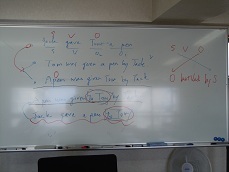 S V O
Jack gave Tom a pen
S V O O
Tom was given a pen by Jack
O
A pen was given Tom by Jack
O be Ved by S
was given to Tom by
Jack gave a pen to Tom